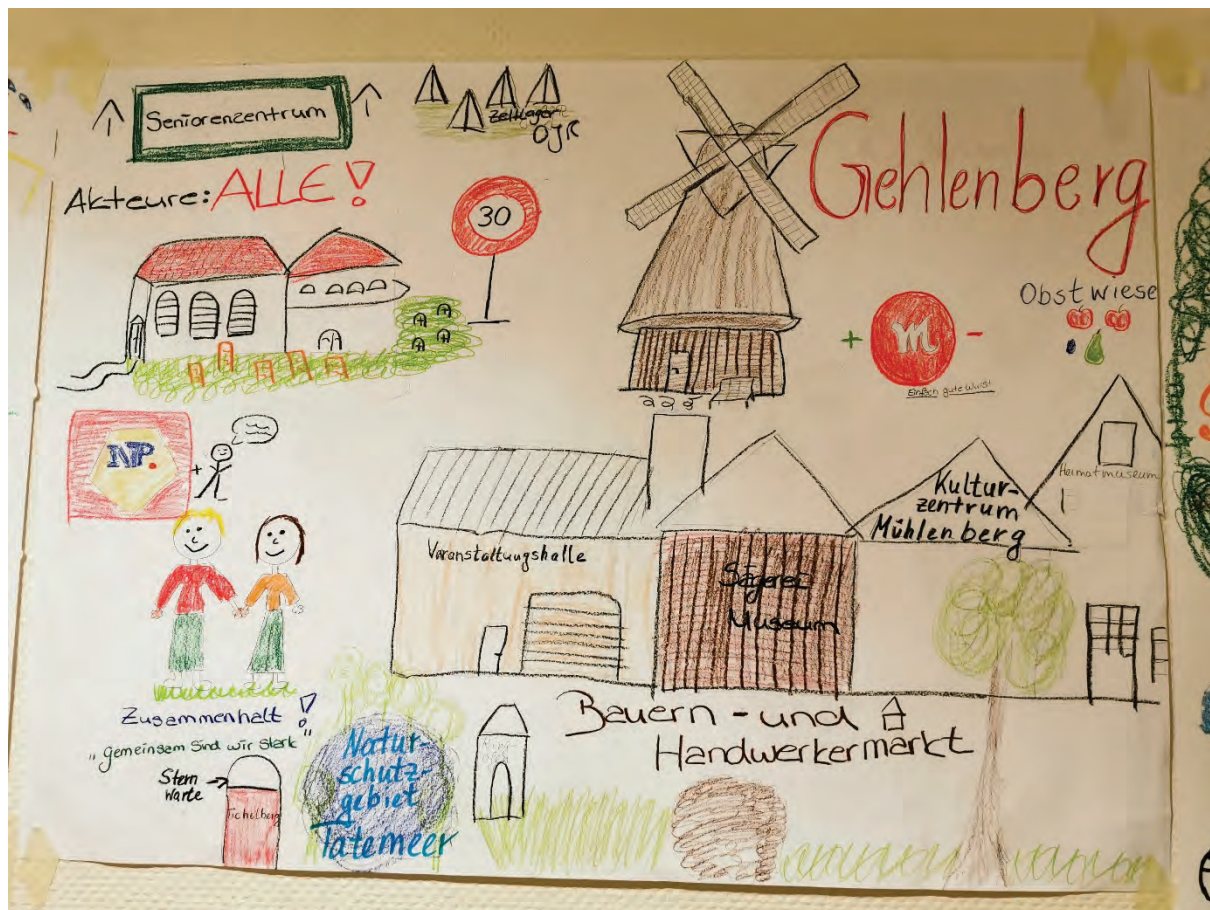 Seniorenzentrum
Zeltlager
OJR
Gehlenberg
Akteure: ALLE!
30
Obstwiese
+ m -
Einfach gute Wurst
NP.
+
Heimatmuseum
Kultur-
zentrum
Mühlenberg
Veranstaltungshalle
Sägerei
Museum
Zusammenhalt!
„gemeinsam Sind wir stark"
Bauern - und
Handwerkermarkt
Stern
warte
Natur-
schutz-
gebiet
Tatemeer